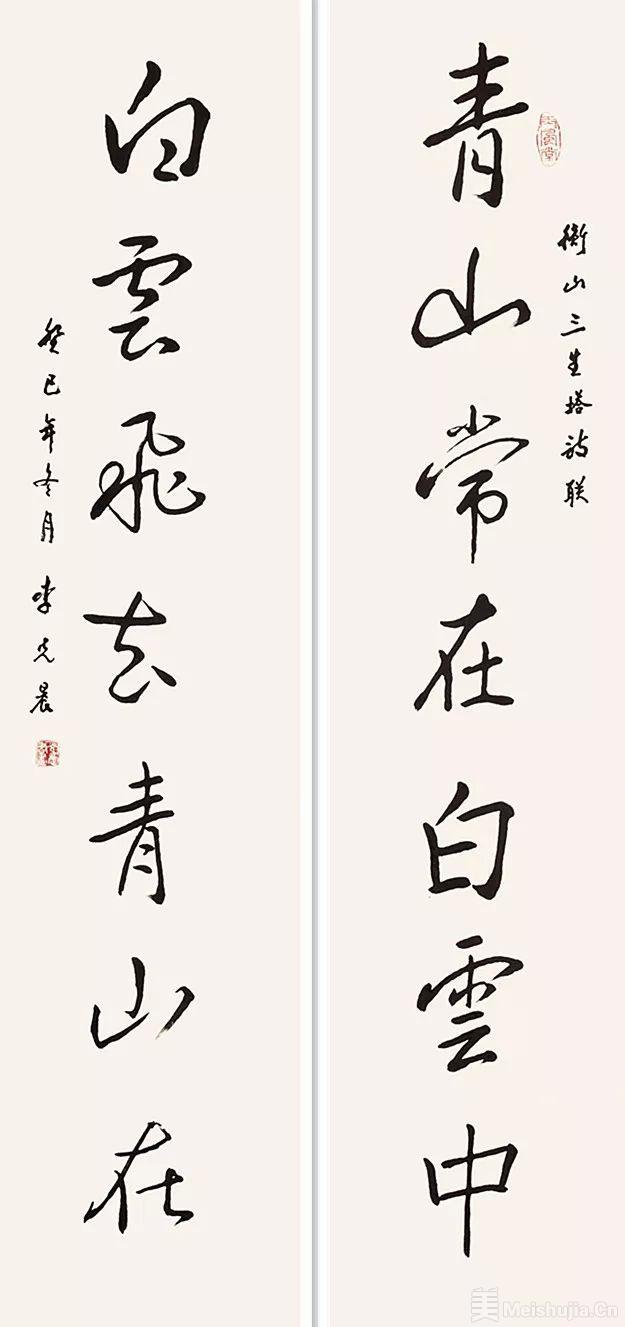 衡山三生塔诗联
青山常在白雲中
白雲飛去青山在
癸巳年冬月 李克晨
美 Meishujia.Cn